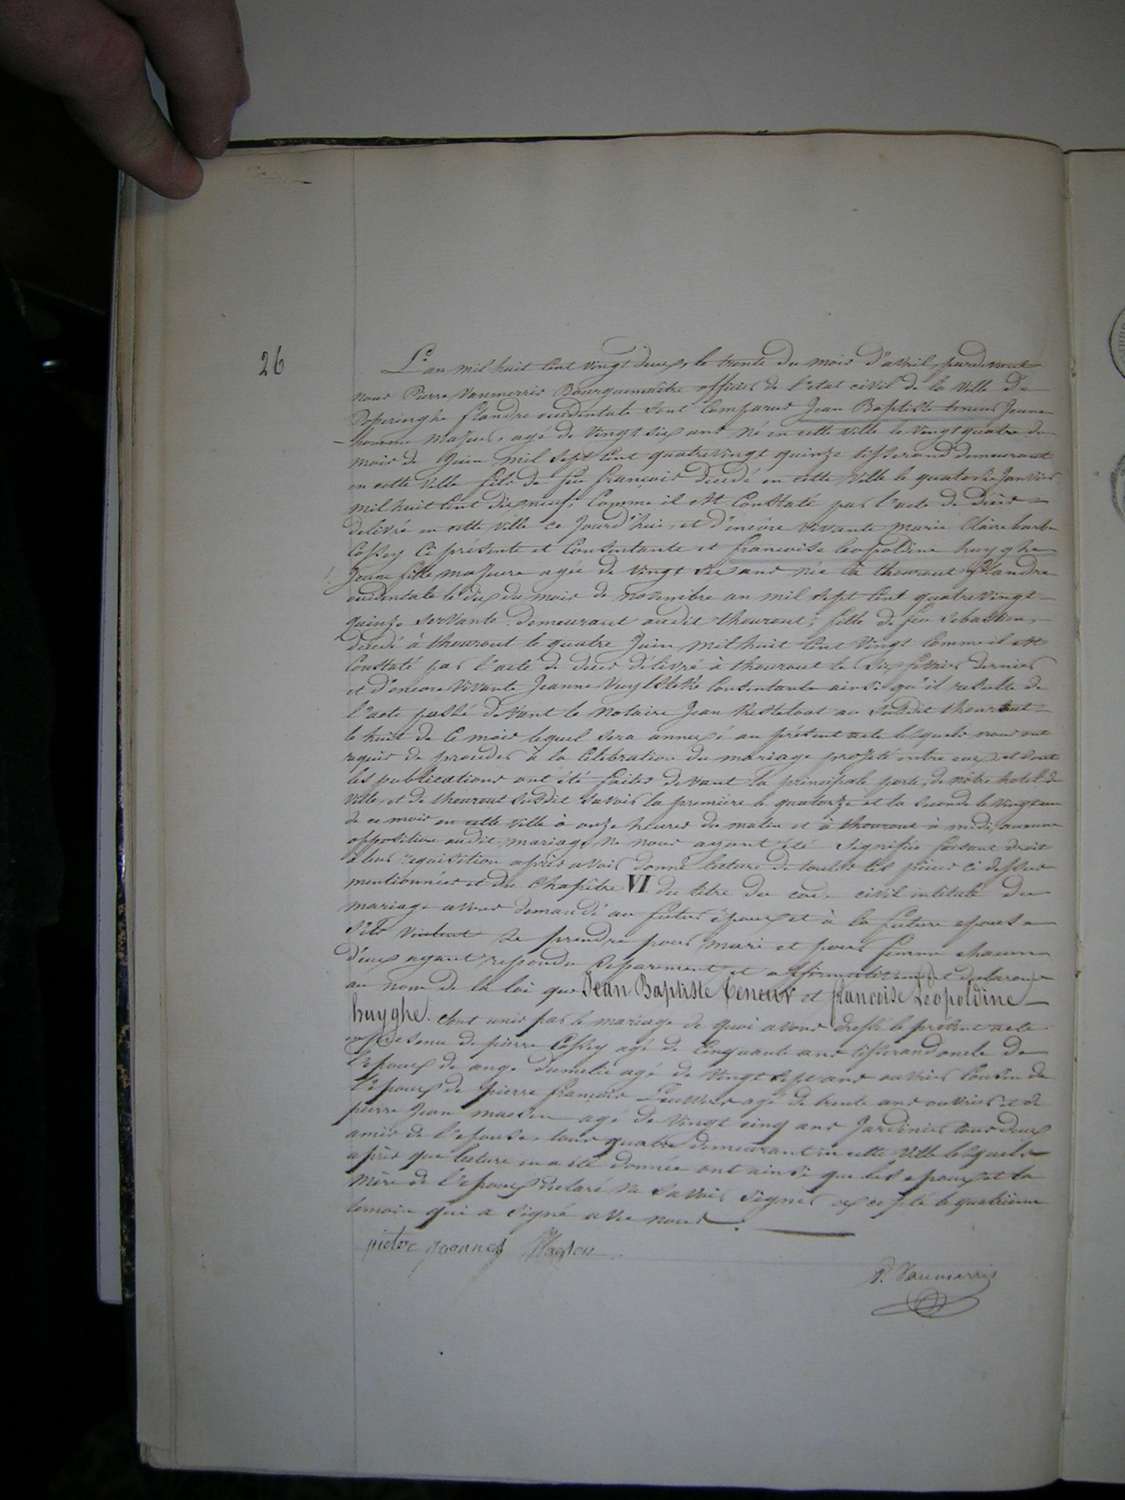 26
L'an mil huit cent vingt deux, le trente du mois d'avril, pardevant
nous Pierre Vanmerris Bourguemaître officier de l'état civil de la ville de
Poperinghe flandre occidentale sont comparus Jean Baptiste teneur Jeune
homme majeur, agé de vingt six ans né en cette ville le vingt quatre du
mois de Juin mil sept cent quatrevingt quinze tisserand demeurant
en cette ville fils de feu francois décédé en cette ville le quatorze Janvier
mil huit cent dix neuf, comme il est constaté par l'acte de décès
délivré en cette ville ce Jourd'hui, et d'encore vivante Marie Claire barbe
Cossey ci présente et consentante et francoise leopoldine huyghe
Jeune fille majeure agée de vingt six ans née à thourout flandre
occidentale le dix du mois de novembre an mil sept cent quatrevingt
quinze servante demeurant audit thourout, fille de feu Sebastien,
décédé à thourout le quatre Juin mil huit cent vingt comme il est
constaté par l'acte de décès délivré à thourout le six février dernier
et d'encore vivante Jeanne consentante ainsi qu'il resulte de
l'acte passé devant le Notaire Jean au susdit thourout
le huit de ce mois lequel sera annexé au présent acte lesquels nous ont
requis de proceder à la célébration du mariage projeté entre eux, et dont
les publications ont été faites devant la principale porte de nôtre hotel de
ville et de thourout susdit savoir la première le quatorze et la seconde le vingt un
de ce mois en cette ville à onze heures du matin et à thourout à midi, aucune
opposition audit mariage ne nous ayant été signifiée faisant droit
à leur requisition après avoir donné lecture de toutes les pièces ci dessus
mentionnées et du Chapitre VI du titre du code civil intitulé du
mariage avons demandé au futur époux et à la future epouse
s'ils veulent se prendre pour mari et pour femme chacun
d'eux ayant repondu separement et affirmativement declarons
au nom de la loi que Jean Baptiste teneur et francoise Leopoldine
huyghe. sont unis par le mariage de quoi avons dressé le présent acte
en présence de pierre Cossey agé de cinquante ans tisserand oncle de
l'epoux de ange agé de vingt sept ans ouvrier cousin de
l'epoux de pierre francois agé de trente ans ouvrier et de
pierre Jean agé de vingt cinq ans Jardinier tous deux
amis de l'epouse, tous quatre demeurant en cette ville lesquels
après que lecture en a été donnée ont ainsi que les epoux et la
mère de l'epoux declaré ne savoir signer excepté le quatrieme
temoin qui a signé avec nous.
pieter joannes
P. Vanmerris